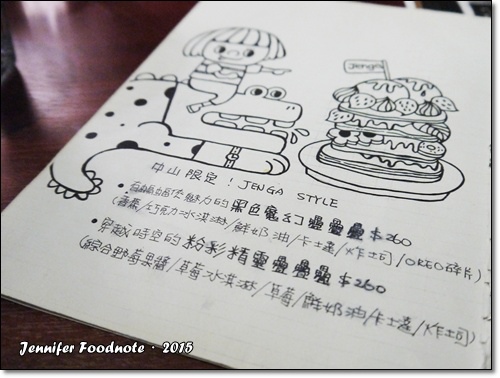 Jenga
中山限定！JENGA STYLE
•蝙蝠俠魅力的黑色魔幻疊疊疊 $260
(香蕉/巧克力冰淇淋/鮮奶油/卡士達/炸土司/OREO碎片)
•穿越時空的粉彩精靈疊疊疊 $260
(綜合野莓果醬/草莓冰淇淋/草莓/鮮奶油/卡士達/炸土司)
Jennifer Foodnote · 2015